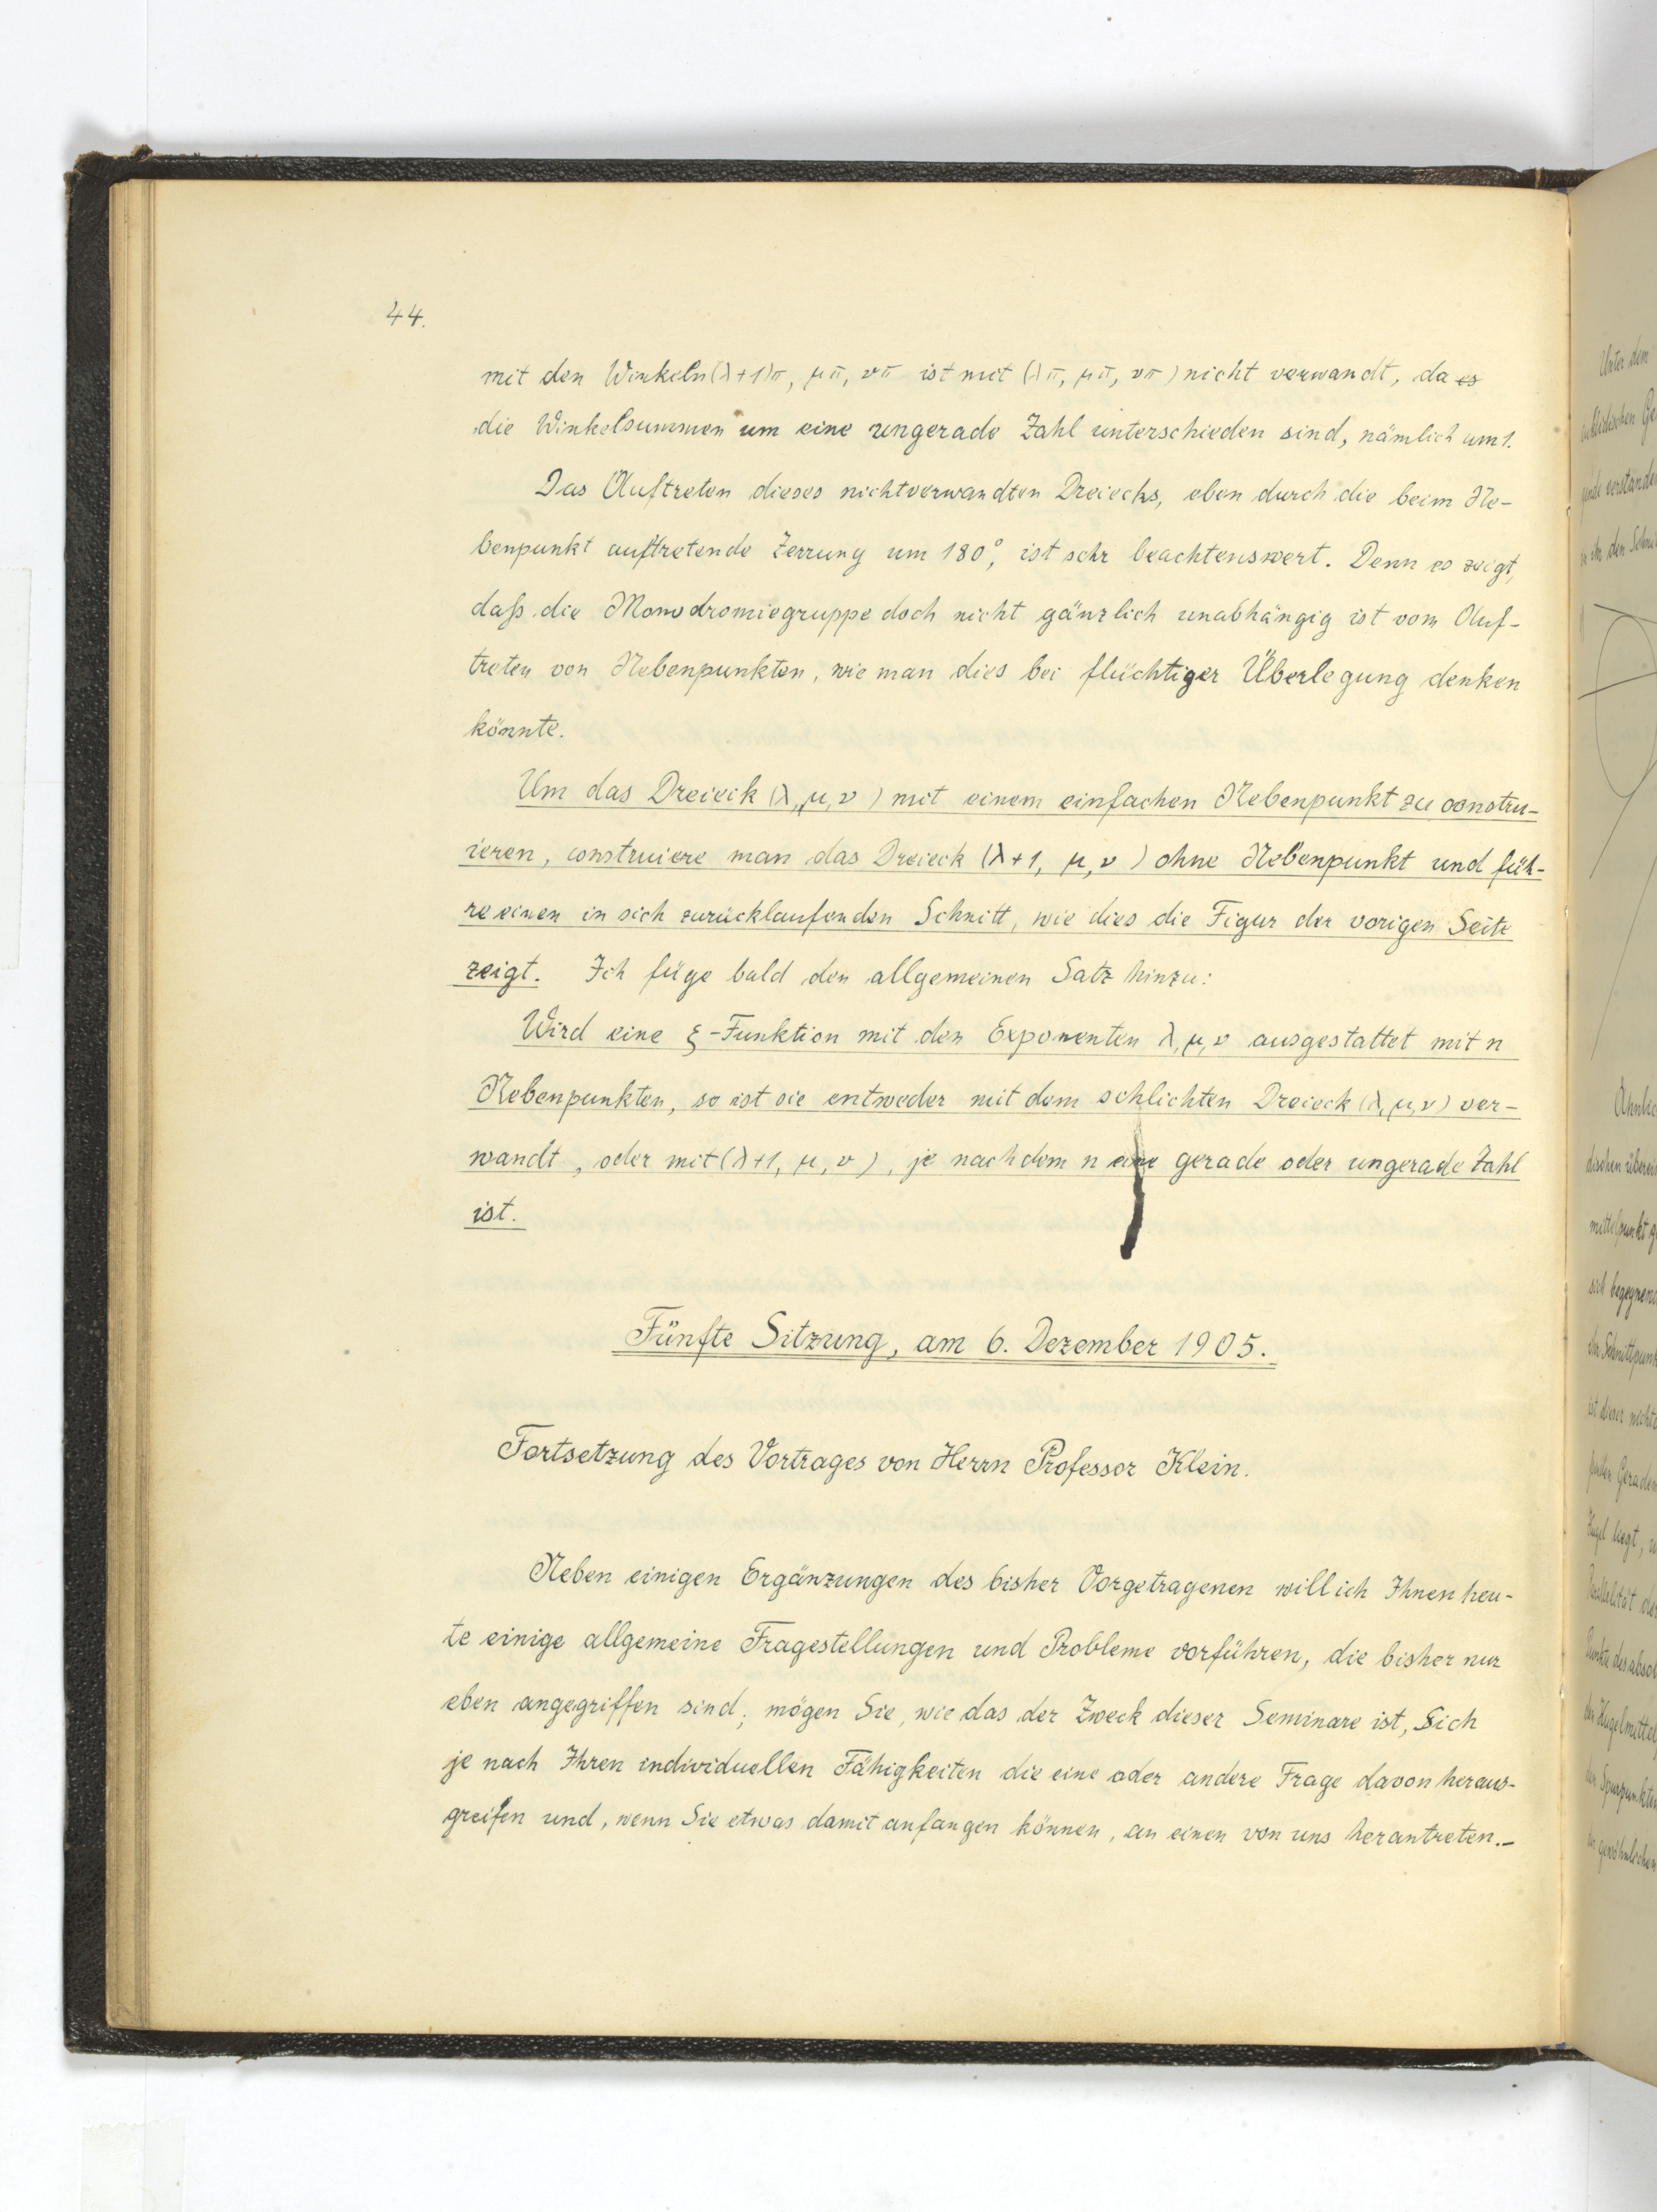 44.
mit den Winkeln (λ+1)π, μπ, νπ ist mit (λπ, μπ, νπ) nicht verwandt, da es
die Winkelsummen um eine ungerade Zahl unterschieden sind, nämlich um 1.
Das Auftreten dieses nichtverwandten Dreiecks, eben durch die beim Ne-
benpunkt auftretende Zerrung um 180°, ist sehr beachtenswert. Denn es zeigt,
daß die Monodromiegruppe doch nicht gänzlich unabhängig ist vom Auf-
treten von Nebenpunkten, wie man dies bei flüchtiger Überlegung denken
könnte.
Um das Dreieck (λ, μ, ν) mit einem einfachen Nebenpunkt zu constru-
ieren, construiere man das Dreieck (λ+1, μ, ν) ohne Nebenpunkt und füh-
re einen in sich zurücklaufenden Schnitt, wie dies die Figur der vorigen Seite
zeigt. Ich füge bald den allgemeinen Satz hinzu:
Wird eine ξ-Funktion mit den Exponenten λ, μ, ν ausgestattet mit n
Nebenpunkten, so ist sie entweder mit dem schlichten Dreieck (λ, μ, ν) ver-
wandt, oder mit (λ+1, μ, ν), je nachdem n eine gerade oder ungerade Zahl
ist.
Fünfte Sitzung, am 6. Dezember 1905.
Fortsetzung des Vortrages von Herrn Professor Klein.
Neben einigen Ergänzungen des bisher Vorgetragenen will ich Ihnen heu-
te einige allgemeine Fragestellungen und Probleme vorführen, die bisher nur
eben angegriffen sind; mögen Sie, wie das der Zweck dieser Seminare ist, Sich
je nach Ihren individuellen Fähigkeiten die eine oder andere Frage davon heraus-
greifen und, wenn Sie etwas damit anfangen können, an einen von uns herantreten.–